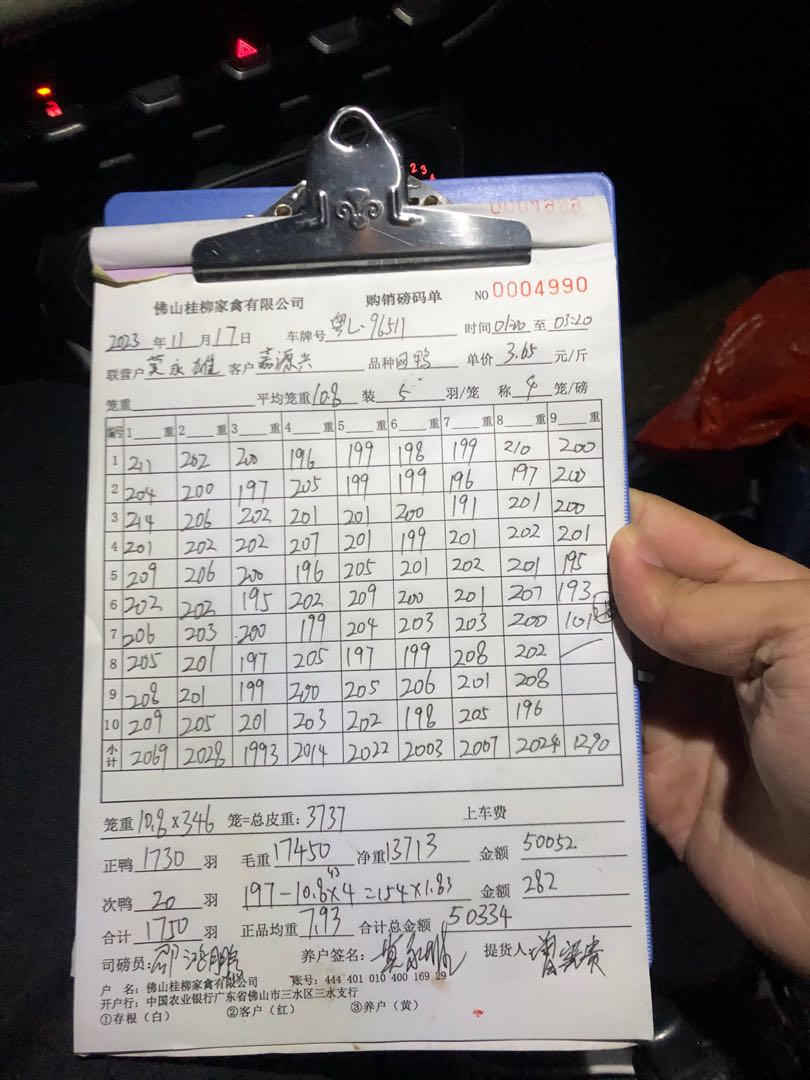 佛山桂柳家禽有限公司 购销磅码单 NO 0004990
2023 年 11 月 17 日 车牌号 粤L·96511 时间 01:20 至 03:20
联营户 莫永雄 客户 嘉源兴 品种 网鸭 单价 3.65 元/斤
笼重 平均笼重 10.8 装 5 羽/笼 称 4 笼/磅
编号 1 重 2 重 3 重 4 重 5 重 6 重 7 重 8 重 9 重
1 211 202 200 196 199 198 199 210 200
2 204 200 197 205 199 199 196 197 200
3 214 206 202 201 201 200 191 201 200
4 201 202 202 207 201 199 201 202 201
5 209 206 200 196 205 201 202 201 195
6 202 202 195 202 209 200 201 207 193
7 206 203 200 199 204 203 203 200 101
8 205 201 197 205 197 199 208 202
9 208 201 199 200 205 206 201 208
10 209 205 201 203 202 198 205 196
小计 2069 2028 1993 2014 2022 2003 2007 2024 1290
笼重 10.8×346 笼=总皮重: 3737 上车费
正鸭 1730 羽 毛重 17450 净重 13713 金额 50052
次鸭 20 羽 197-10.8×4=154×1.83 金额 282
43
合计 1750 羽 正品均重 7.93 合计总金额 50334
司磅员: 养户签名: 提货人:
户 名: 佛山桂柳家禽有限公司 账号: 444 401 010 400 169 29
开户行: 中国农业银行广东省佛山市三水区三水支行
①存根(白) ②客户(红) ③养户(黄)